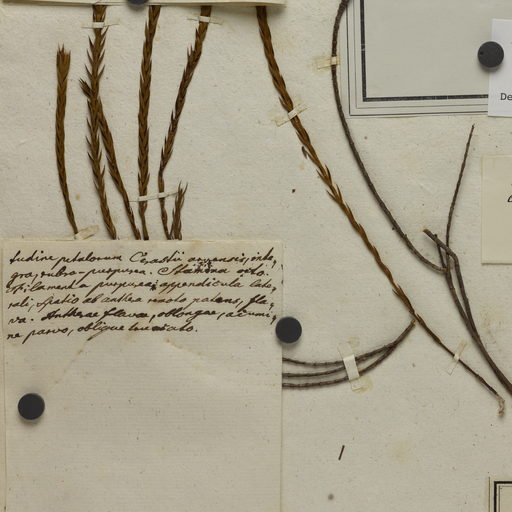 tudine petalorum Cerastii arvensis, inte,
gra, rubro-purpurea. Stamina octo.
Filamenta purpurea, appendicula late,
rali, spatio ab anthera remoto patens, fla,
va. Antherae flavae, oblongae, acumi,
ne parvo, oblique truncato.
De